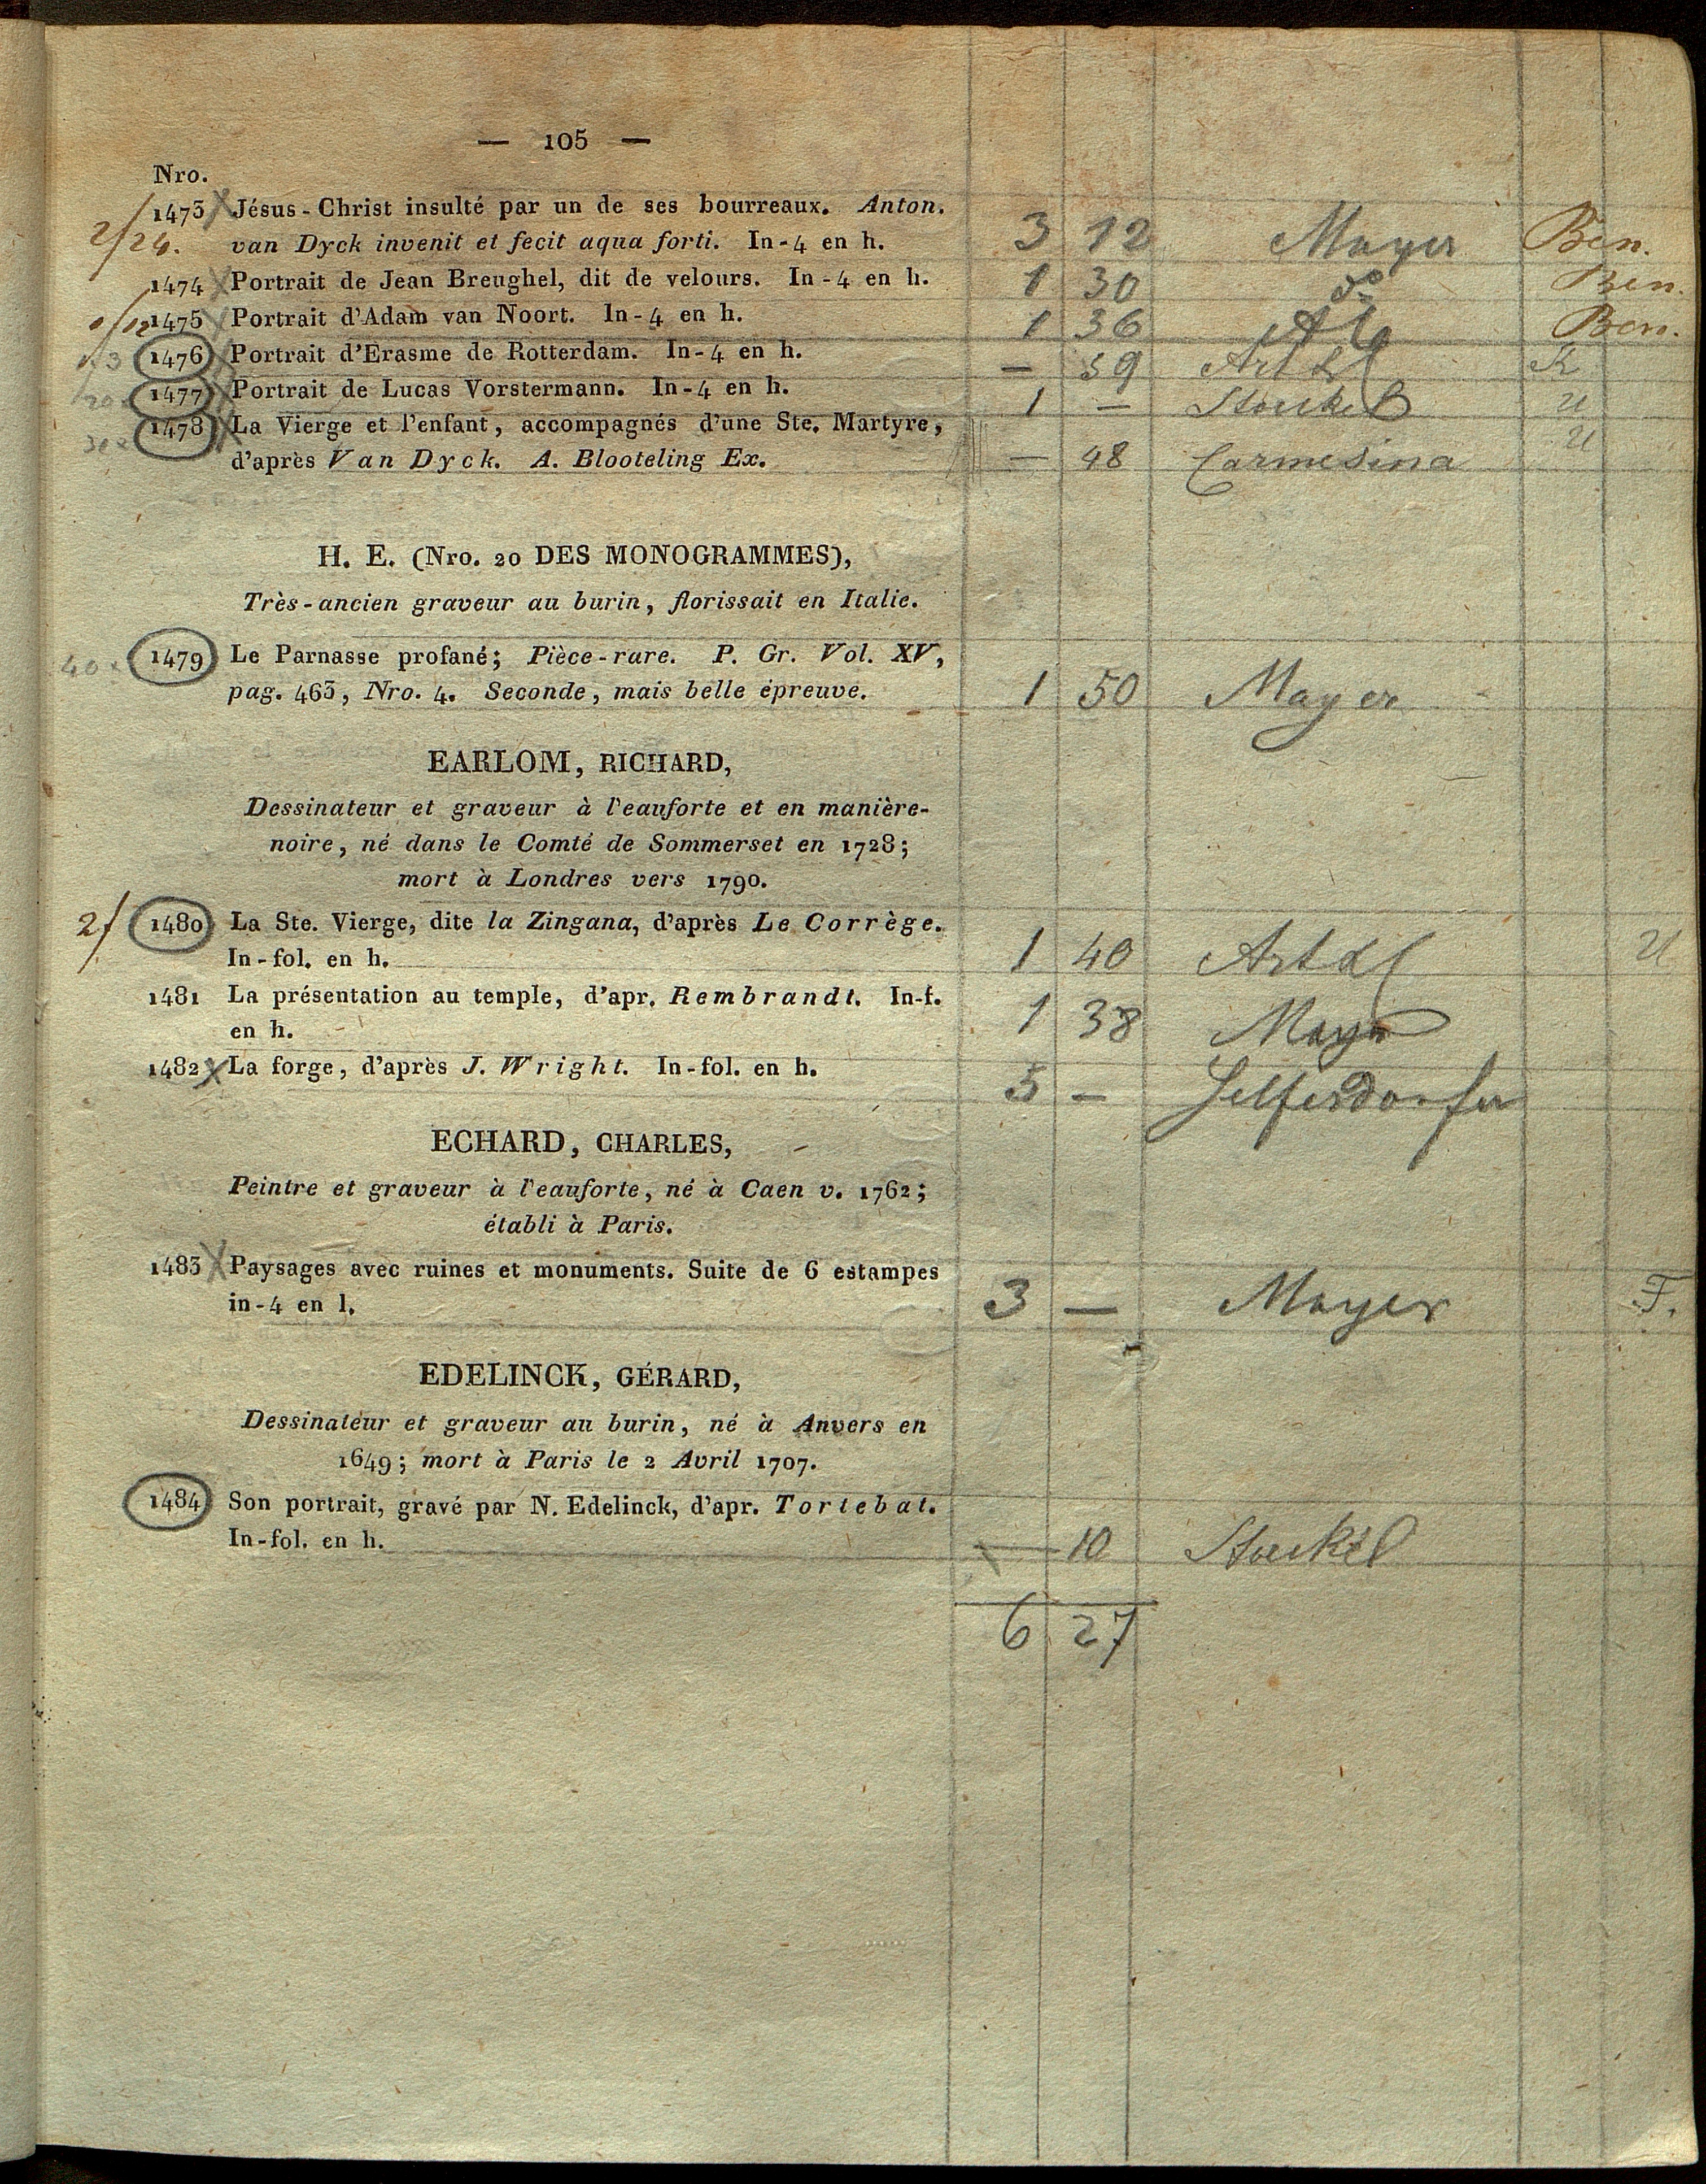 — 105 —
Nro.
1473 Jésus-Christ insulté par un de ses bourreaux. Anton.
2/24. van Dyck invenit et fecit aqua forti. In-4 en h. 3 12 Mayer Ben.
1474 Portrait de Jean Breughel, dit de velours. In-4 en h. 1 30 do Ben.
1475 Portrait d'Adam van Noort. In-4 en h. 1 36 Ben.
1476 Portrait d'Erasme de Rotterdam. In-4 en h. — 59 Artar
1477 Portrait de Lucas Vorstermann. In-4 en h. 1 — Stöckel U
1478 La Vierge et l'enfant, accompagnés d'une Ste. Martyre,
d'après Van Dyck. A. Blooteling Ex. — 48 Carmesina U
H. E. (Nro. 20 DES MONOGRAMMES),
Très-ancien graveur au burin, florissait en Italie.
40 x 1479 Le Parnasse profané; Pièce-rare. P. Gr. Vol. XV,
pag. 463, Nro. 4. Seconde, mais belle épreuve. 1 50 Mayer
EARLOM, RICHARD,
Dessinateur et graveur à l'eauforte et en manière-
noire, né dans le Comté de Sommerset en 1728;
mort à Londres vers 1790.
2f 1480 La Ste. Vierge, dite la Zingana, d'après Le Corrège.
In-fol. en h. 1 40 U
1481 La présentation au temple, d'apr. Rembrandt. In-f.
en h. 1 38 Mayer
1482 La forge, d'après J. Wright. In-fol. en h. 5 —
ECHARD, CHARLES,
Peintre et graveur à l'eauforte, né à Caen v. 1762;
établi à Paris.
1483 Paysages avec ruines et monuments. Suite de 6 estampes
in-4 en l. 3 — Mayer F.
EDELINCK, GÉRARD,
Dessinateur et graveur au burin, né à Anvers en
1649; mort à Paris le 2 Avril 1707.
1484 Son portrait, gravé par N. Edelinck, d'apr. Tortebat.
In-fol. en h. — 10 Stöckel
6 27